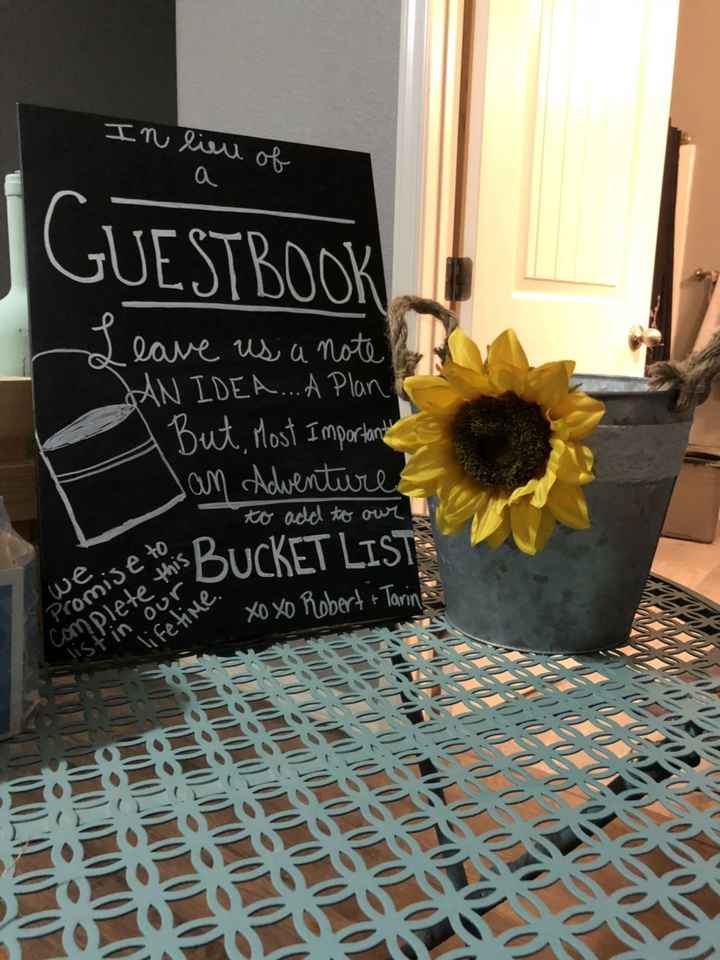 In lieu of
a
GUESTBOOK
Leave us a note
AN IDEA... A Plan
But, Most Important
an Adventure
to add to our
BUCKET LIST
we
Promise to
Complete this
list in our
lifetime.
xoxo Robert + Tarin